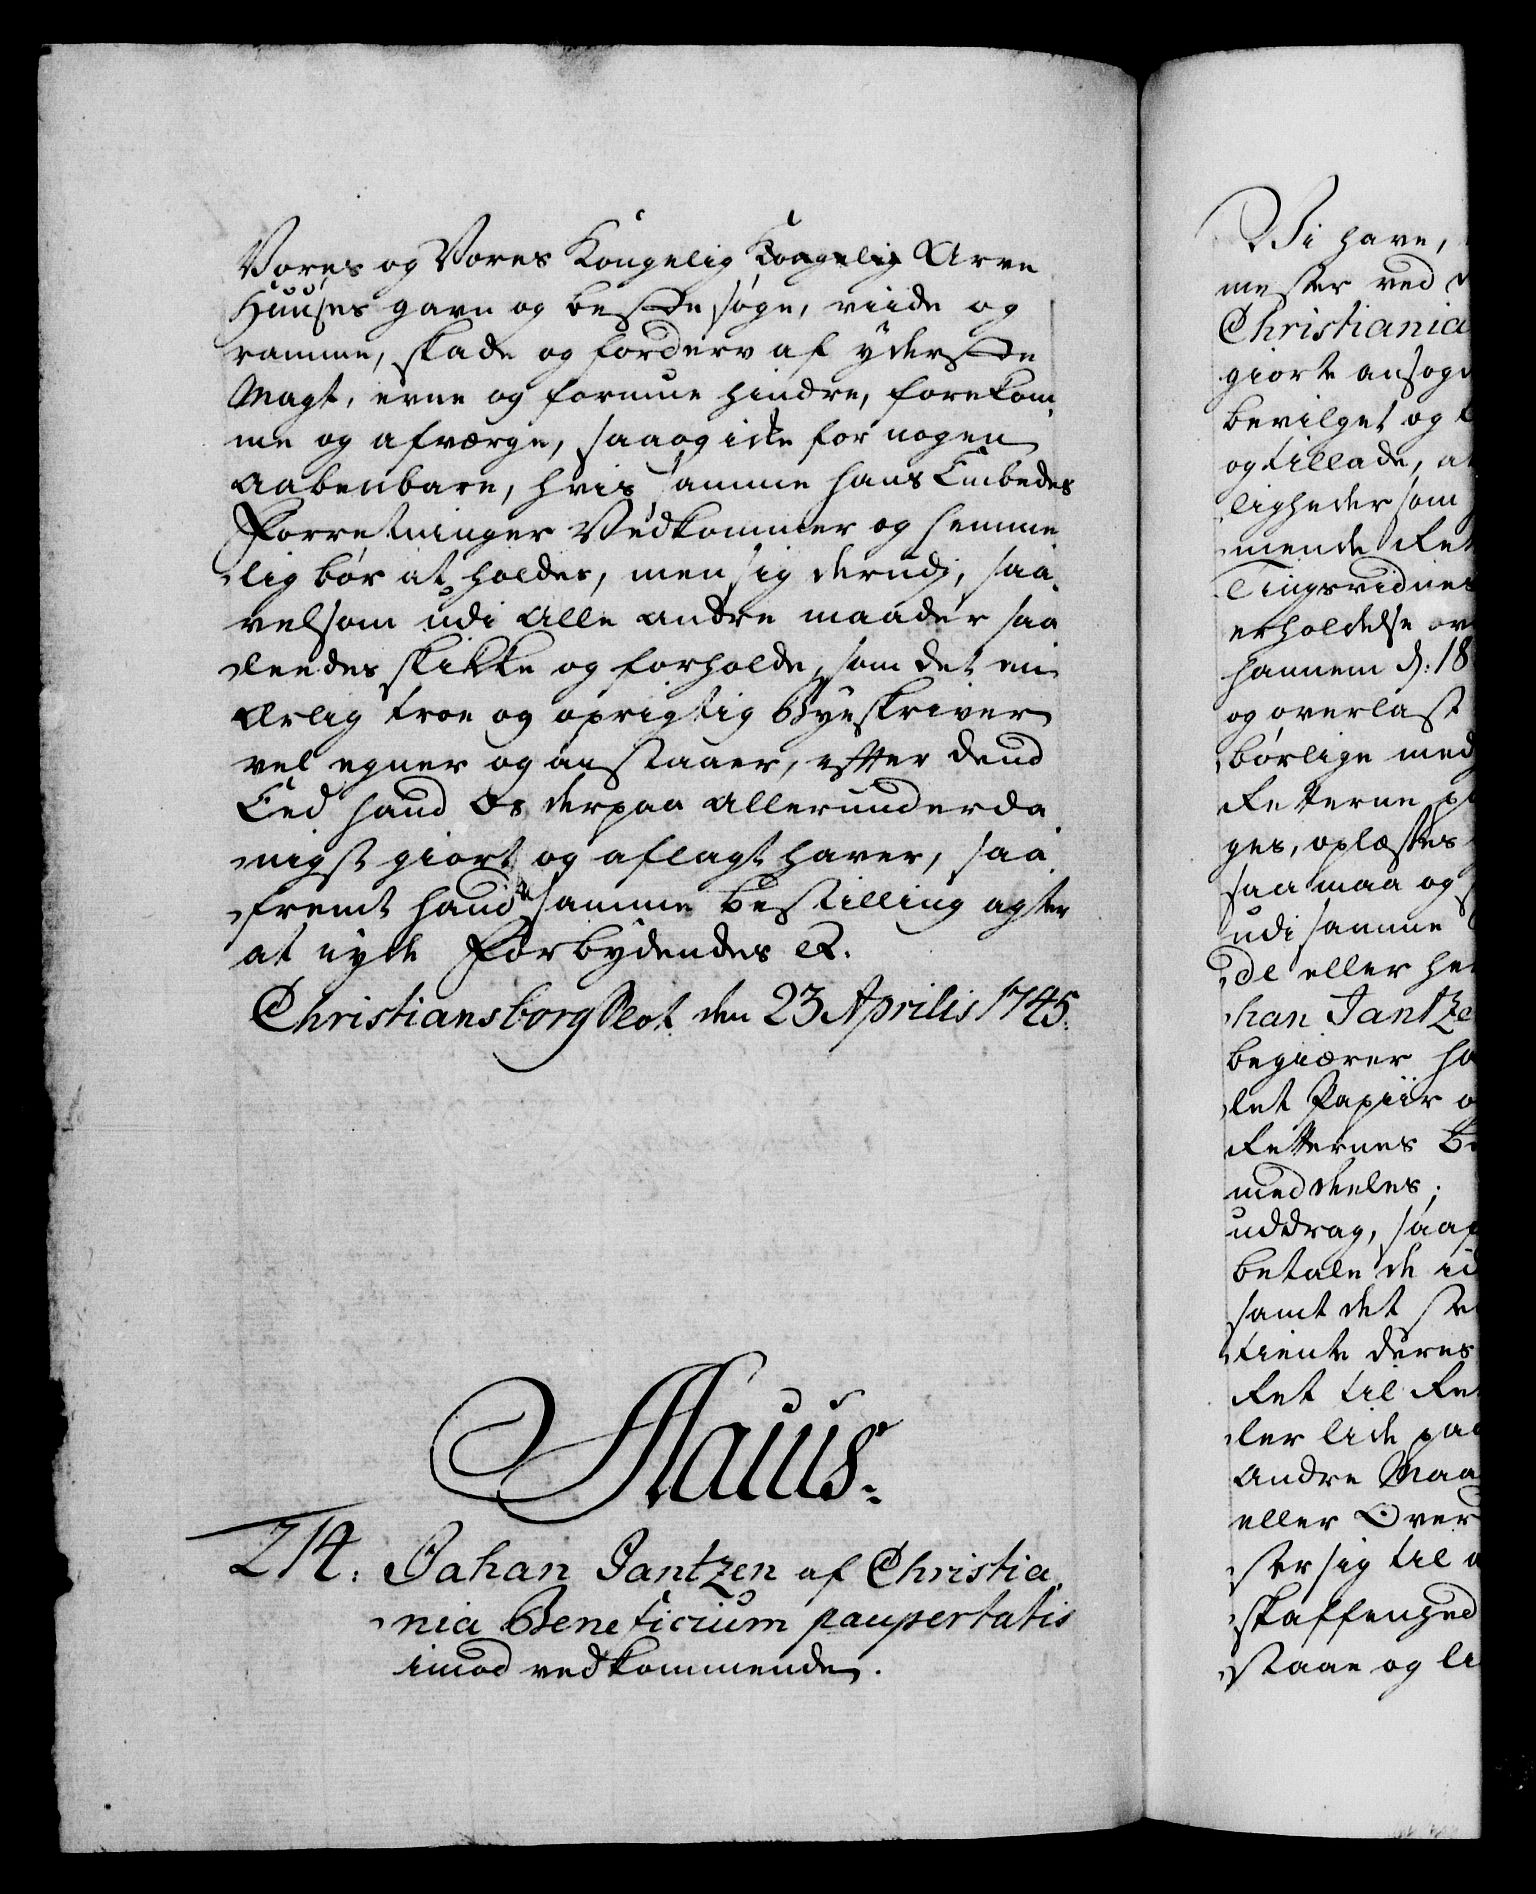 Vores og Vores Kongelig Kongelig Arve
Huuses gavn og beste søge, viide og
ramme, skade og forderv af yderste
Magt, evne og formue hindre, forekom¬
me og afværge, saa og icke for nogen
aabenbare, hvis samme hans Embedes
Forretninger Vedkommer og hemme
lig bør at holdes, men sig derudj, saa¬
velsom udi alle andre maader saa
ledes skikke og forholde, som det en
Ærlig troe og oprigtig Byeskriver
vel egner og anstaaer, efter dend
Eed hand Os derpaa allerunderda
nigst giort og aflagt haver, saa
fremt hand samme bestilling agter
at nyde Forbydendes &.
Christiansborg Slot den 23 Aprilis 1745.
Maius.
214. Johan Jantzen af Christia
nia Beneficium paupertatis
imod vedkommende.
Vi have,
mester ved
Christiania
giort ansøgn
bevilget og
og tillade, at
ligheder som
mende Ret
Tingsvidnes
erholdelse ov
hannem d: 18
og overlast
børlige med
Retterne p
ges, oplæstes
saa maa og
udi samme
de eller he
han Jantze
begiærer ha
let Papiir o
Retternes Be
meddeeles;
uddrag, saa
betale de
samt det st
tiente deres
Ret til Re
ler lide paa
andre Maa
eller Over
ster sig til
skaffenhed
staae og li